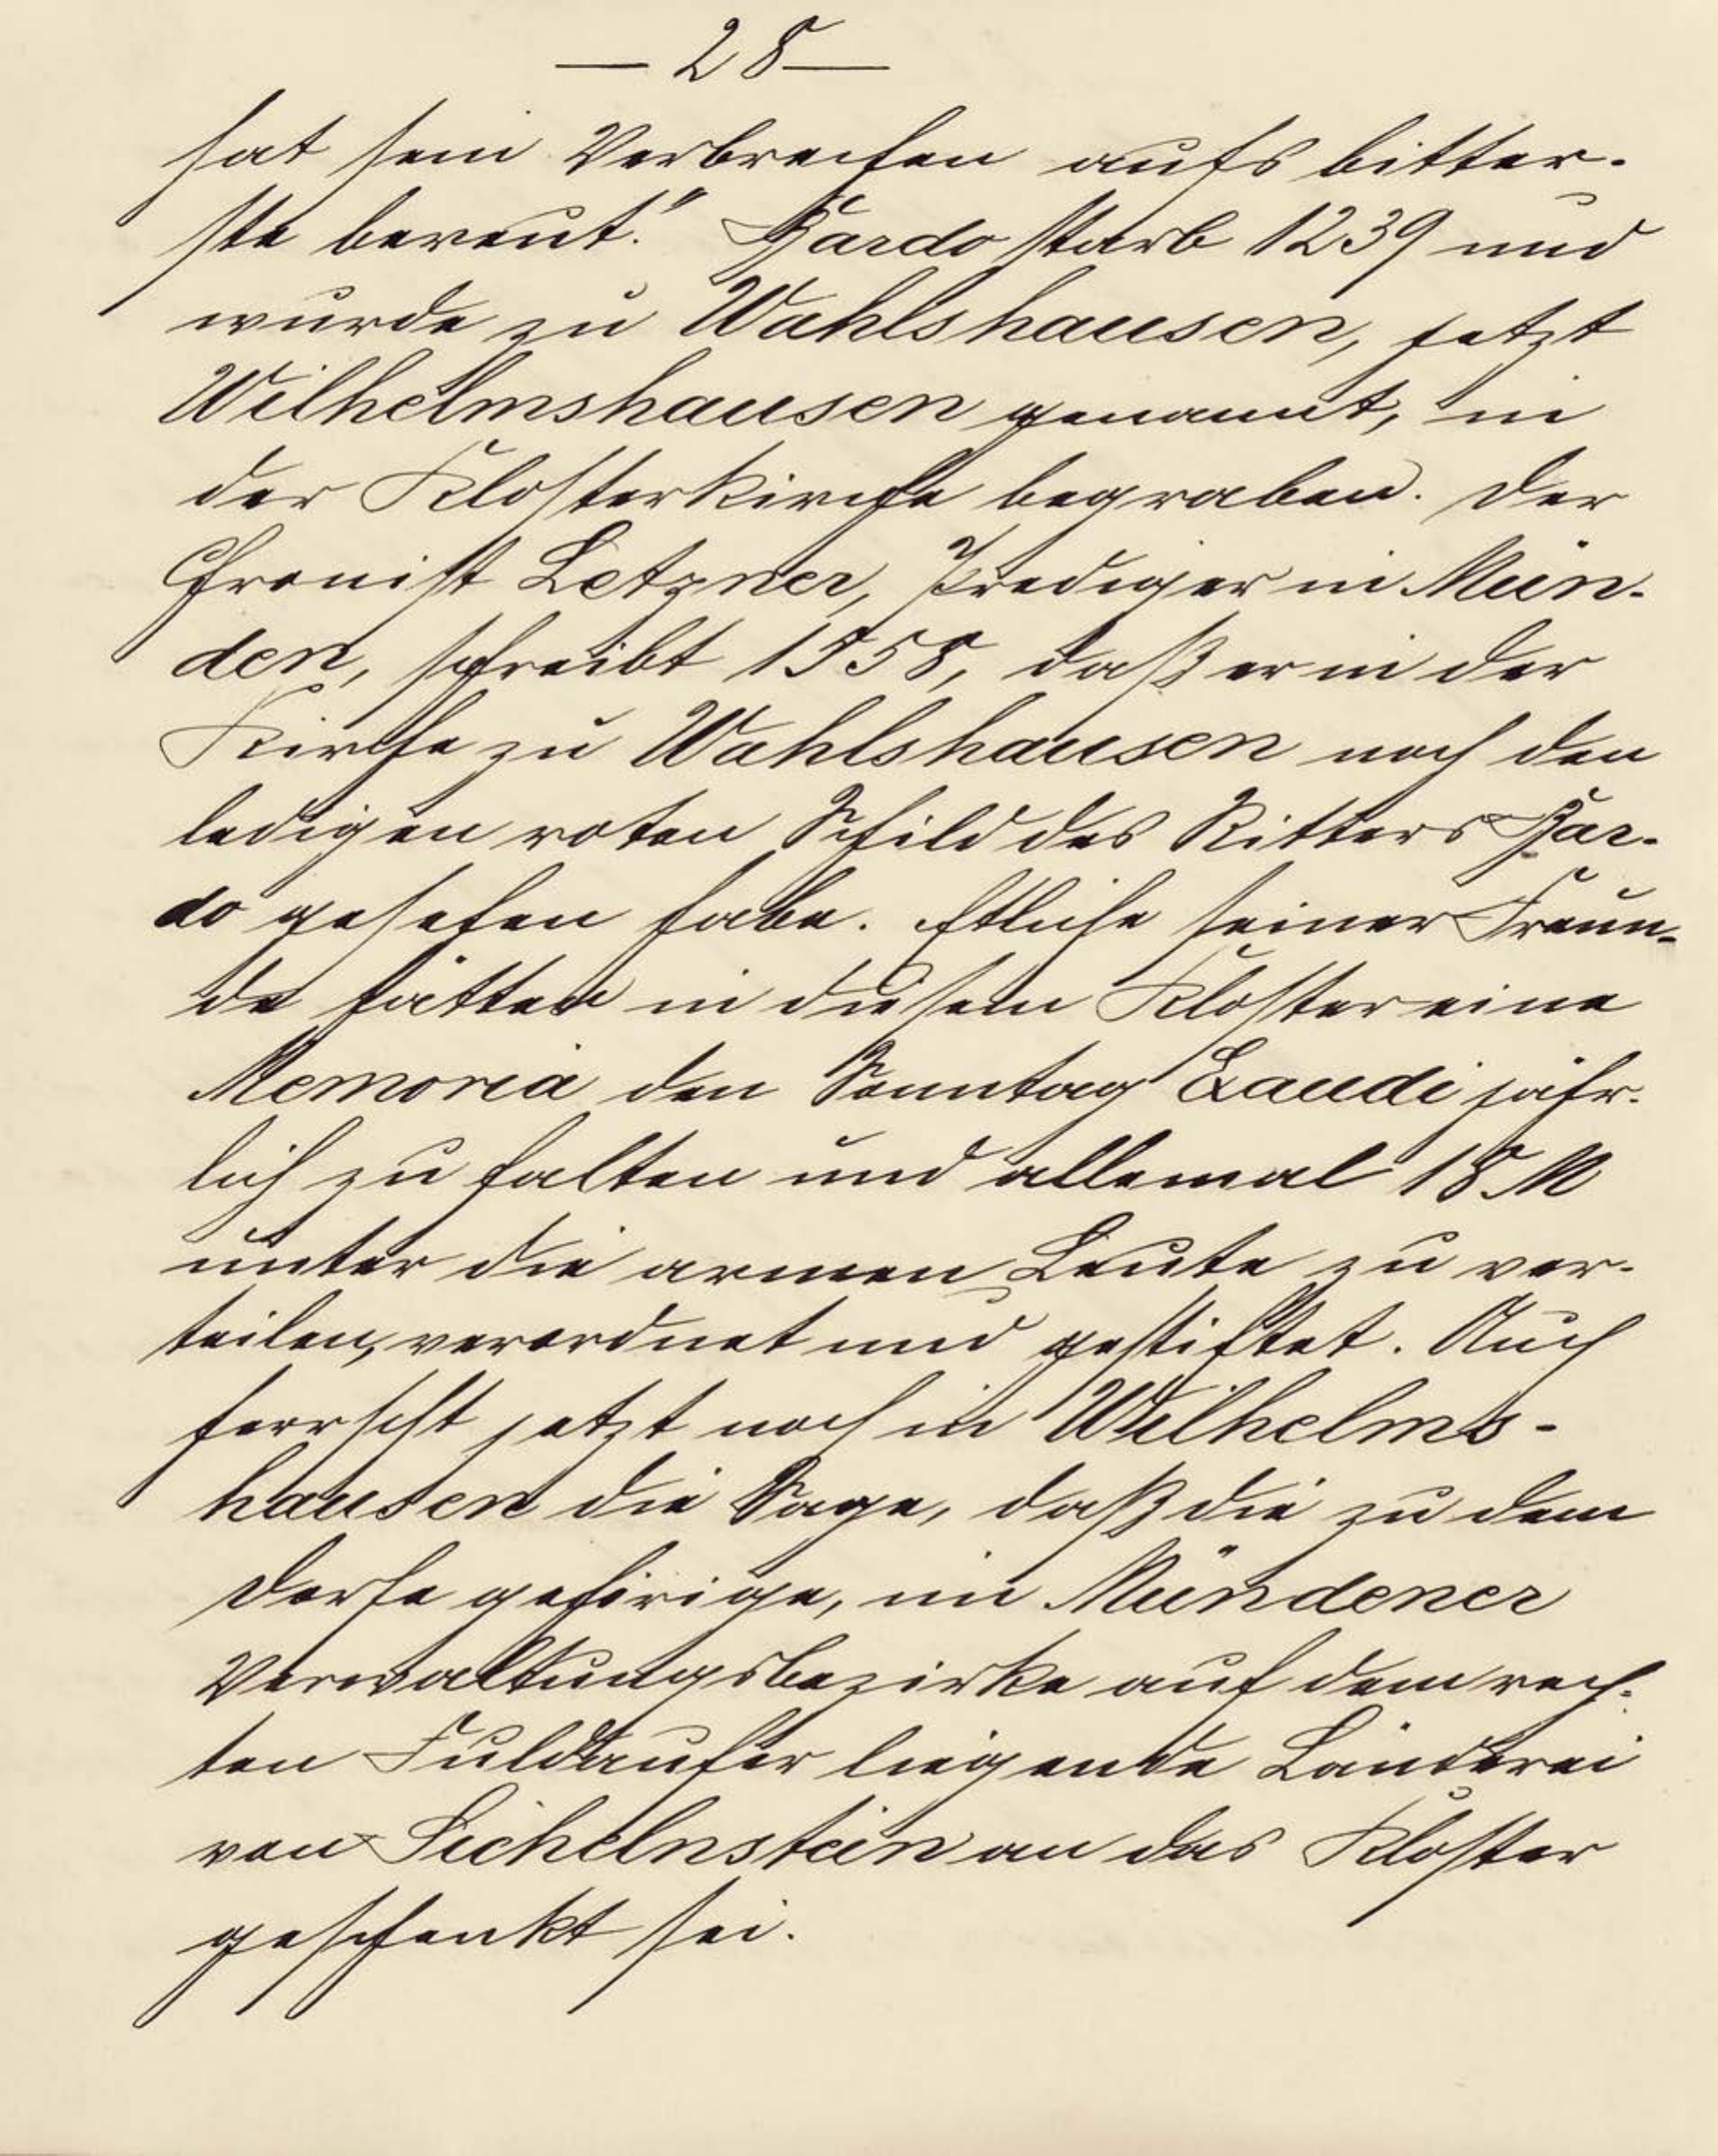 — 28 —
hat sein Verbrechen aufs bitter-
ste bereut." Bardo starb 1239 und
wurde zu Wahlshausen, jetzt
Wilhelmshausen genannt, in
der Klosterkirche begraben. Der
Chronist Letzner, Prediger in Mün-
den, schreibt 1558, daß er in der
Kirche zu Wahlshausen noch den
ledigen roten Schild des Ritters Bar-
do gesehen habe. Etliche seiner Freun-
de hätten in diesem Kloster eine
Memoria den Sonntag Exaudi jähr-
lich zu halten und allemal 18 M
unter die armen Leute zu ver-
teilen, verordnet und gestiftet. Auch
herrscht jetzt noch in Wilhelms-
hausen die Sage, daß die zu dem
Dorfe gehörige, im Mündener
Verwaltungsbezirke auf dem rech-
ten Fuldaufer liegende Länderei
von Sichelnstein an das Kloster
geschenkt sei.